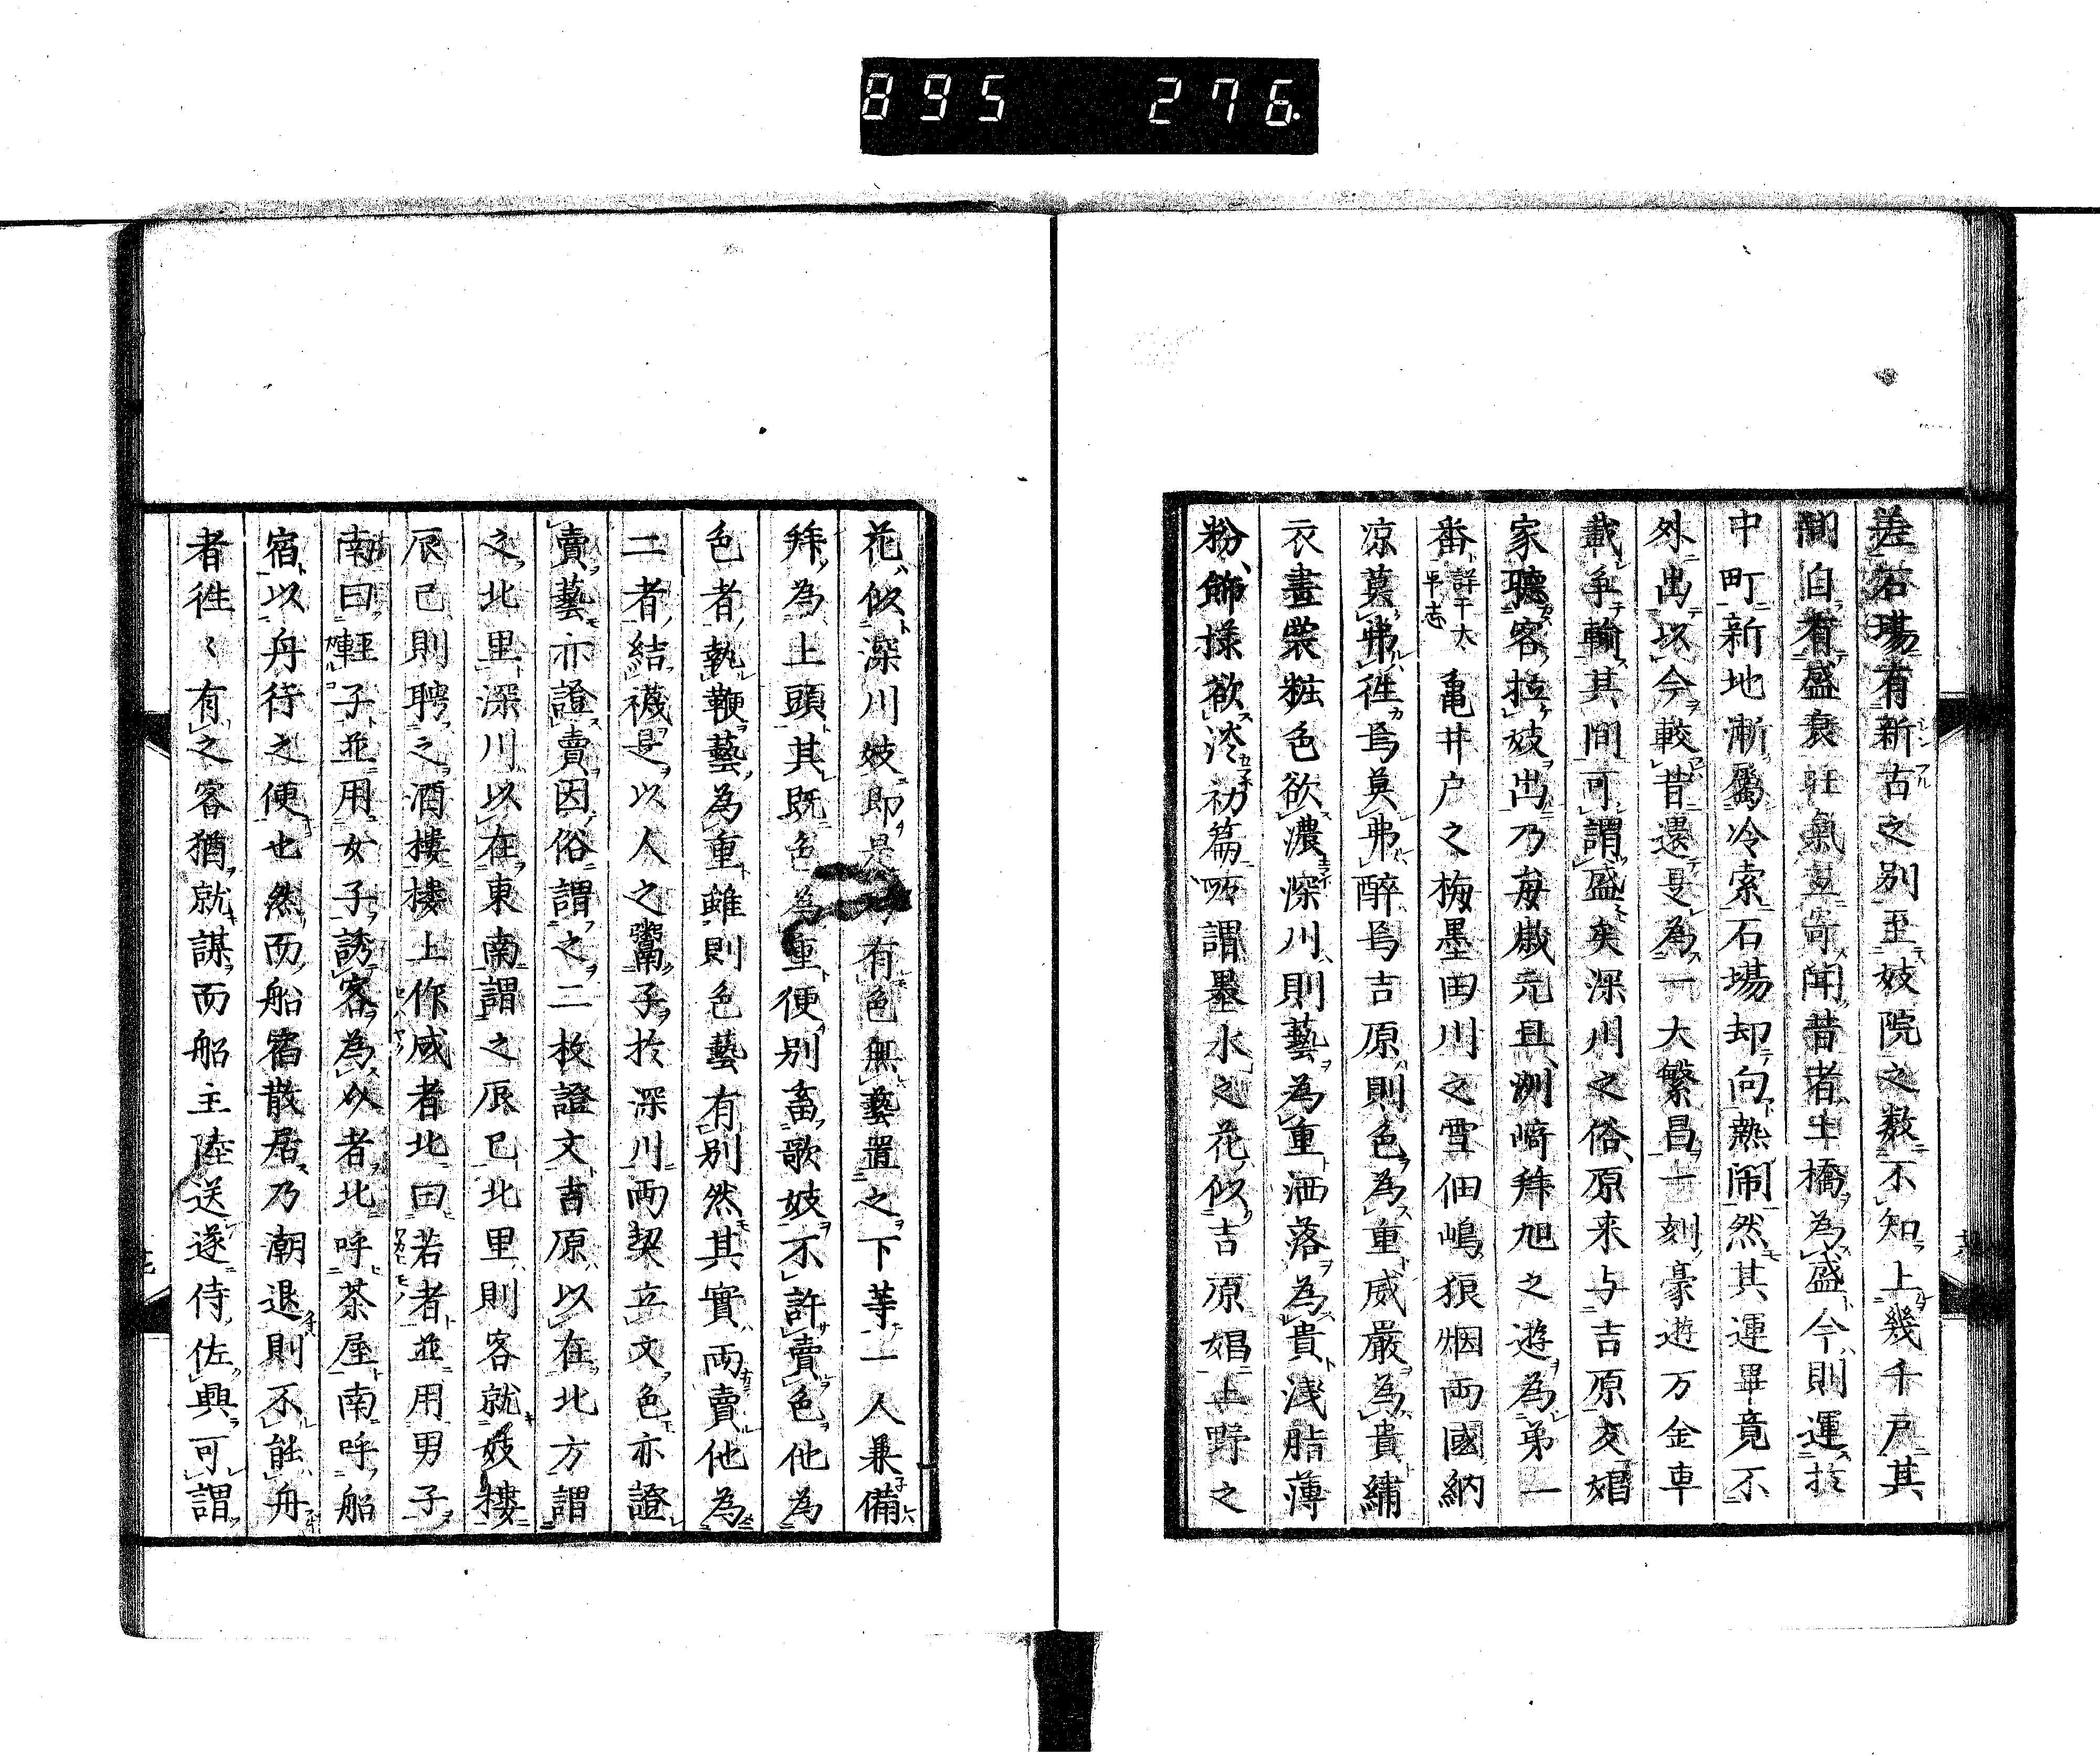 895 276
差石場有新古之別至妓院之数不知上幾千戸其
間自有盛衰旺氣互寄聞昔者土橋為盛今則運於
中町新地漸屬冷索石場却向熱閙然其運畢竟不
外出以今較昔還是為一大繁昌一刻豪遊万金車
載爭輸其間可謂盛矣深川之俗原来与吉原反娼
家聴客拉妓出乃毎歳元旦洲﨑拜旭之遊為第一
番詳于太平志亀井戸之梅墨田川之雪佃嶋狼烟兩國納
凉莫弗徃焉莫弗醉焉吉原則色為重威嚴為貴繡
衣畫裳粧色欲濃深川則藝為重洒落為貴浅脂薄
粉飾様欲淡初篇所謂墨水之花似吉原娼上野之
花似深川妓即是有色無藝置之下等一人兼備
拜為上頭其既色為重便別畜歌妓不許賣色他為
色者執鞭藝為重雖則色藝有別然其實両賣他為
二者結襪是以人之鬻子於深川兩契立文色亦證
賣藝亦證賣因俗謂之二枚證文吉原以在北方謂
之北里深川以在東南謂之辰巳北里則客就妓樓
辰己則聘之酒樓樓上作威者北曰若者並用男子
南曰輕子並用女子誘客為以者北呼茶屋南呼船
宿以舟行之便也然而船宿散居乃潮退則不能舟
者徃〻有之客猶就謀而船主陸送遂侍佐興可謂